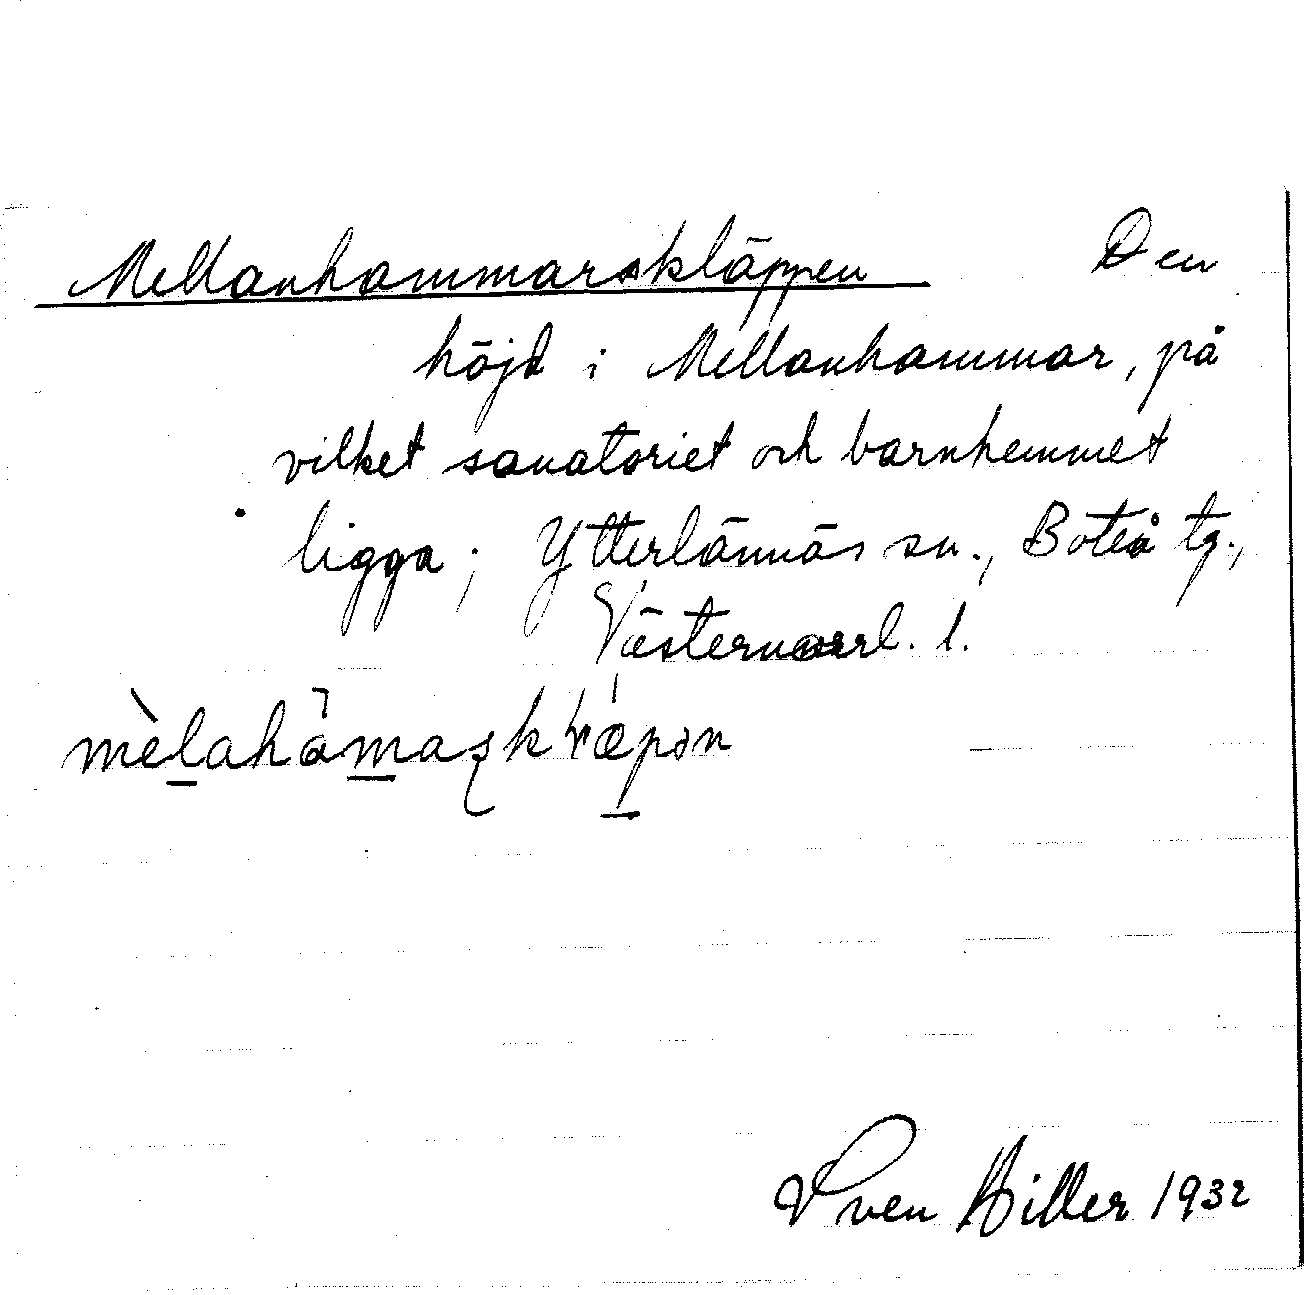 Mellanhammarskläppen Den
höjd i Mellanhammar, på
vilket sanatoriet och barnhemmet
ligga; Ytterlännäs sn., Boteå tg.,
Västernorrl. l.
Sven Hiller 1932